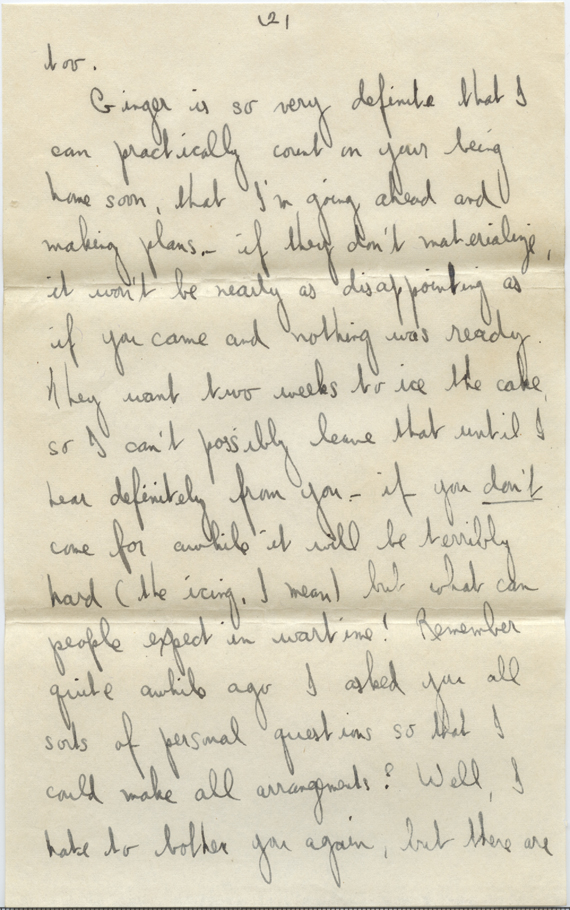 (2)
too.
Ginger is so very definite that I
can practically count on your being
home soon, that I'm going ahead and
making plans - if they don't materialize,
it won't be nearly as disappointing as
if you came and nothing was ready.
They want two weeks to ice the cake,
so I can't possibly leave that until I
hear definitely from you - if you don't
come for awhile it will be terribly
hard (the icing, I mean) but what can
people expect in wartime! Remember
quite awhile ago I asked you all
sorts of personal questions so that I
could make all arrangements? Well, I
hate to bother you again, but there are